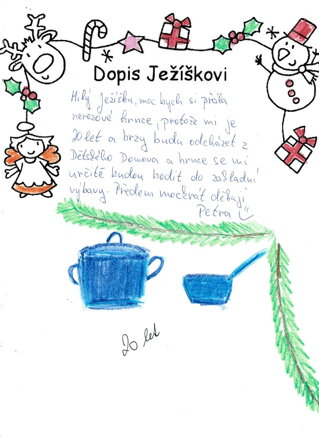 Dopis Ježíškovi
Milý Ježíšku, moc bych si přála
nerezové hrnce, protože mi je
20 let a brzy budu odcházet z
Dětského Domova a hrnce se mi
určitě budou hodit do základní
výbavy. Předem mockrát děkuji
Petra
20 let